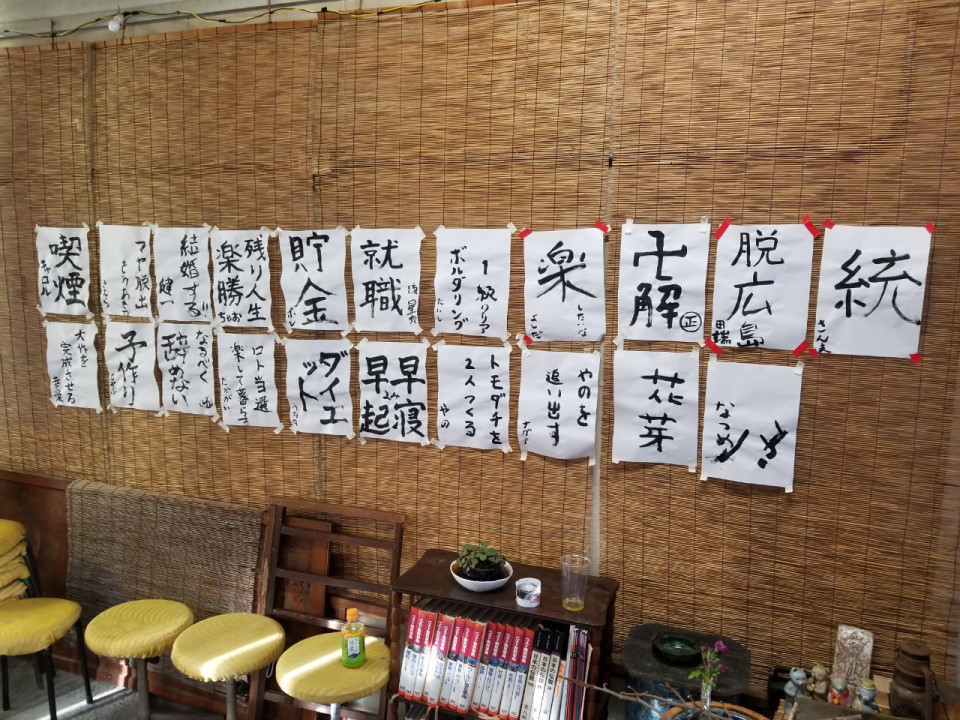 喫煙
キャロル
マヤ脱出
結婚する
健一
残り人生
楽勝
ちゃお
貯金
就職
ボルダリング
1級リリア
たいし
楽
したいな
よしだ
卍解
正
脱広島
田端
統
大作を
完成させる
子作り
なるべく
辞めない
ロト当選
楽して暮らす
ダイエット
早寝
早起
トモダチを
2人つくる
やの
やのを
追い出す
花芽
なつめ